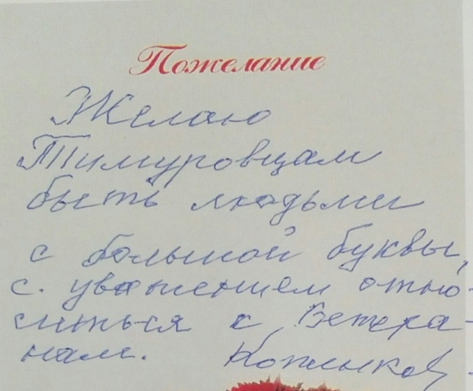 Пожелание
Желаю
Тимуровцам
быть людьми
с большой буквы,
с. уважением отно-
ситься к Ветера-
нам.